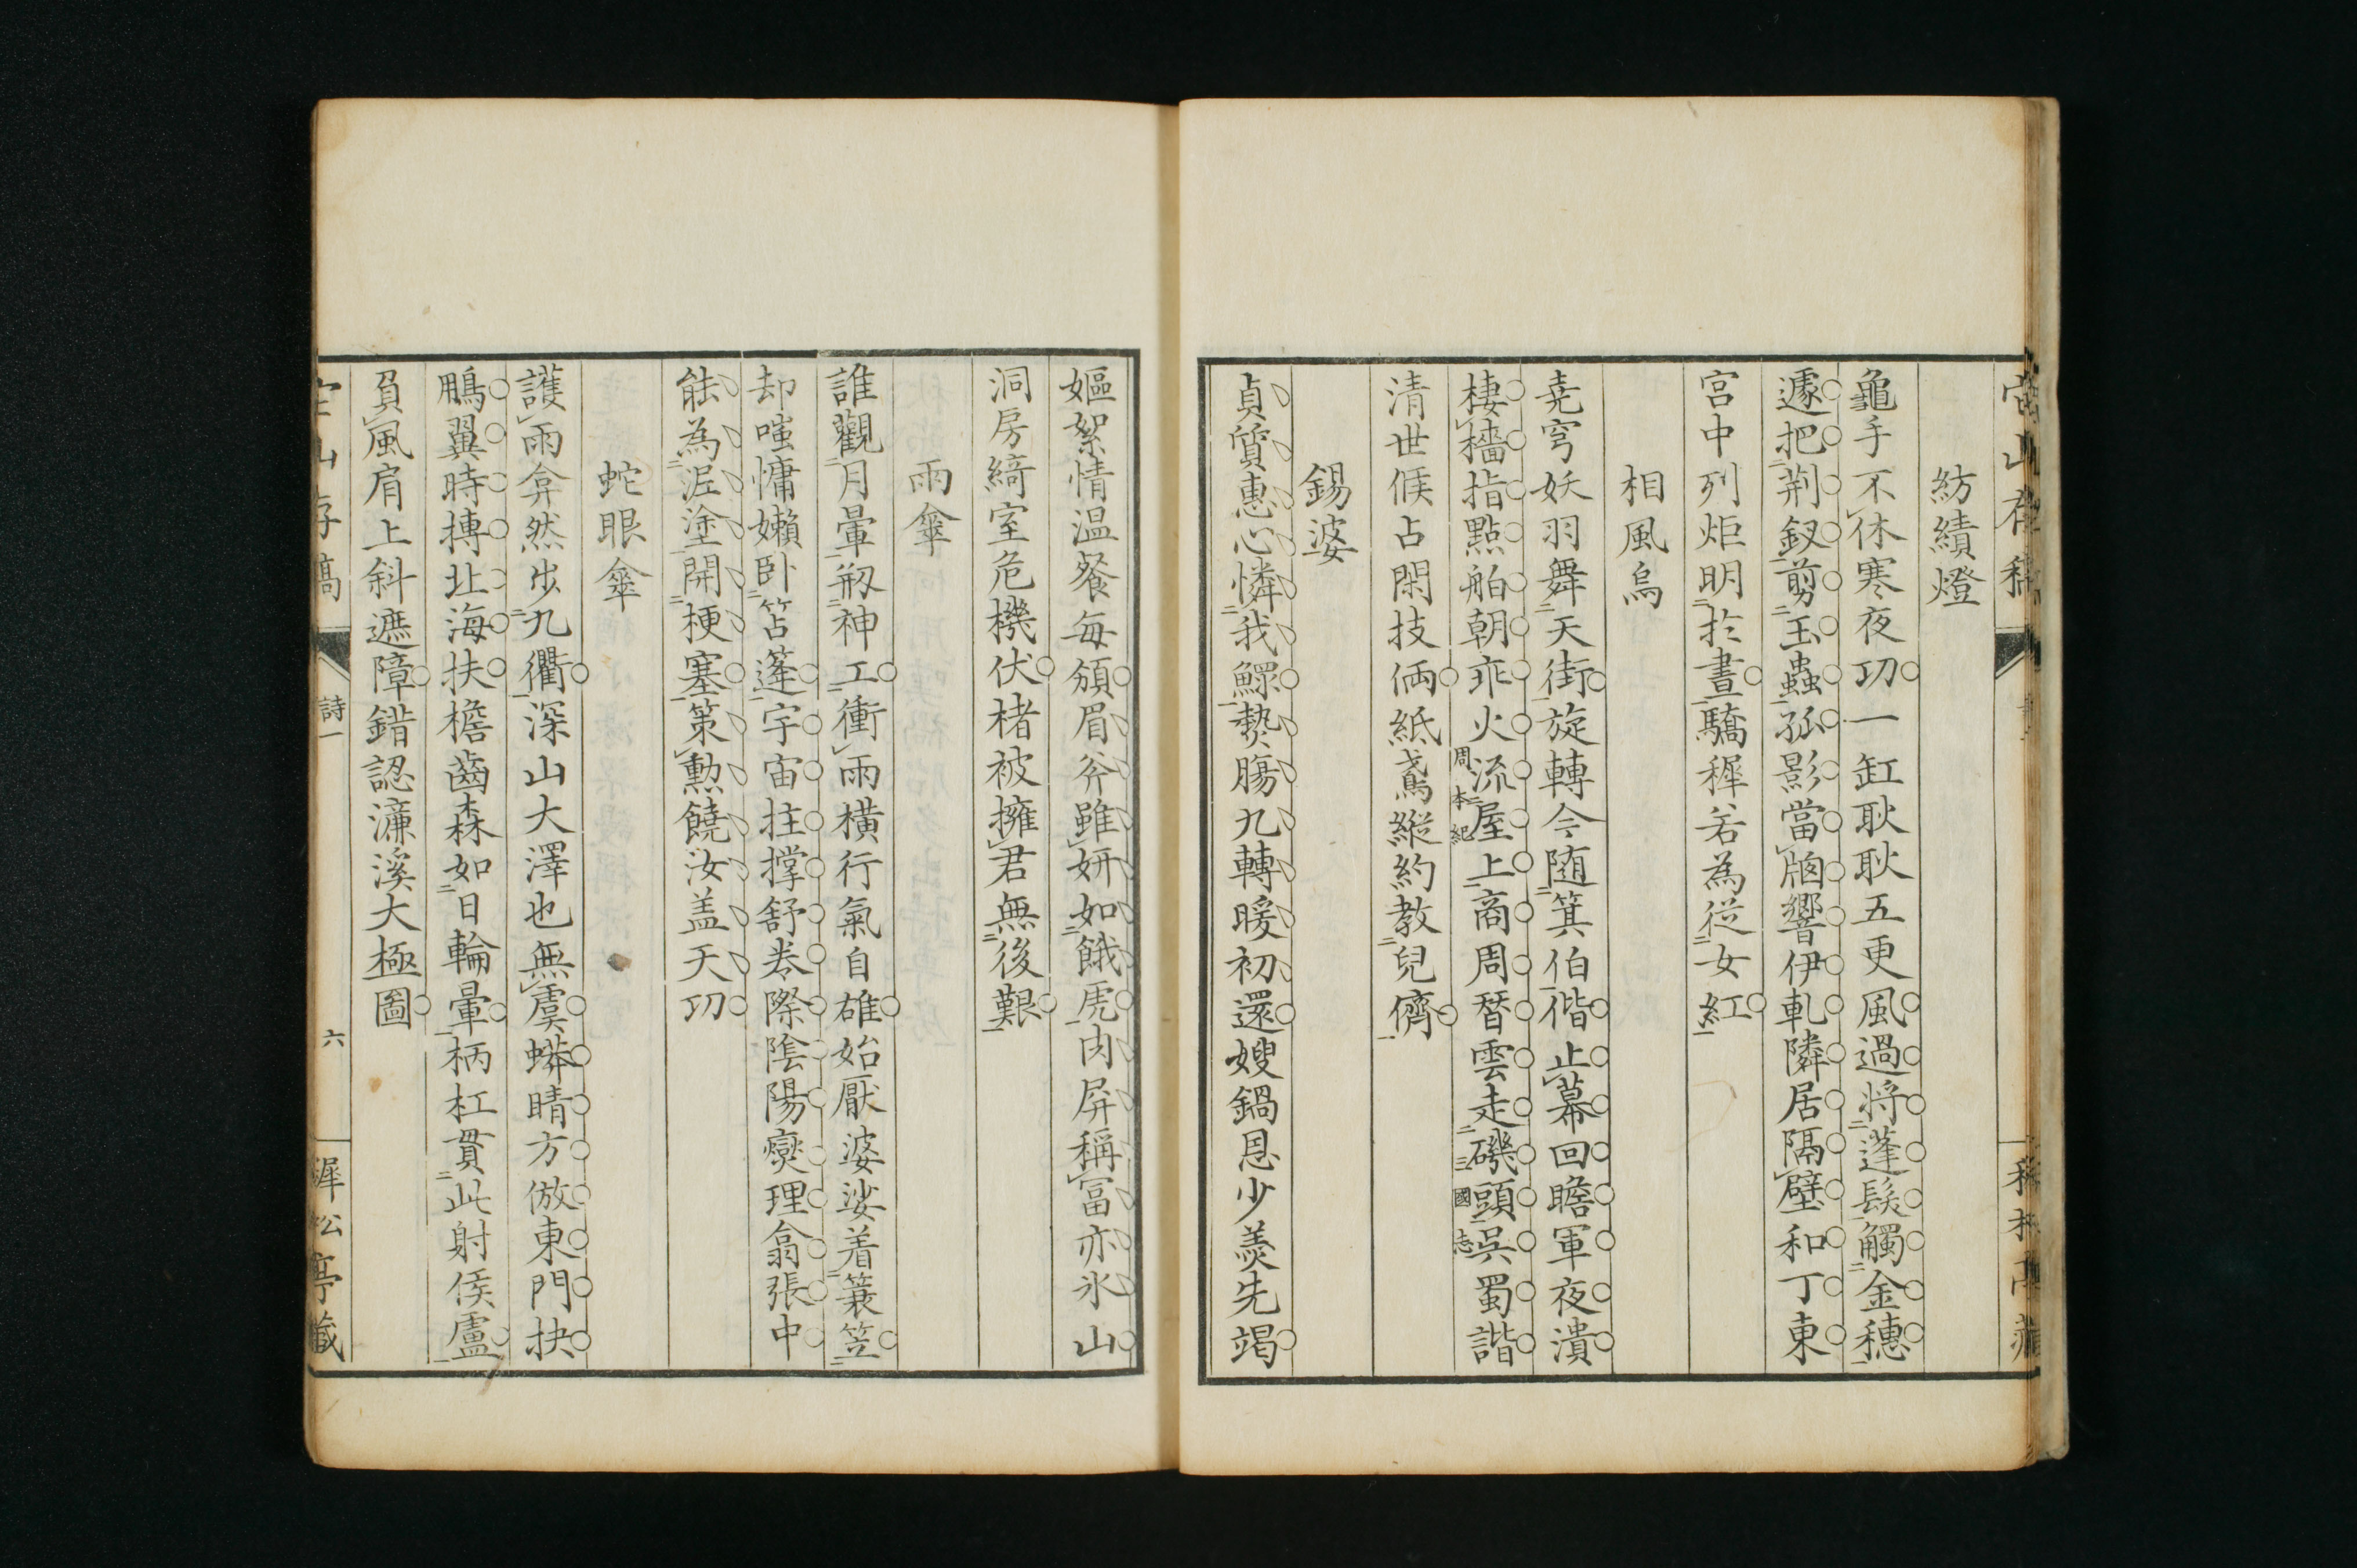 紡績燈
龜手不休寒夜功一缸耿耿五更風過將蓬髮觸金穗
遽把荆釵剪玉蟲孤影當牕響伊軋隣居隔壁和丁東
宮中列炬明於晝驕穉若為從女紅
相風烏
堯穹妖羽舞天街旋轉今随箕伯偕止幕回瞻軍夜潰
棲檣指點舶朝乖火流屋上商周暦雲走磯頭吳蜀諧
周本紀
三國志
清世候占閑技倆紙鳶縱約教兒儕
錫婆
貞質惠心憐我鰥䙝腸九轉暖初還嫂鍋恩少羹先竭
嫗絮情温餐每頒眉斧雖妍如餓虎肉屏稱冨亦氷山
洞房綺室危機伏楮被擁君無後艱
雨傘
誰觀月暈剏神工衝雨橫行氣自雄始厭婆娑着簑笠
却嗤慵嬾卧笘篷宇宙拄撑舒卷際陰陽燮理翕張中
能為泥塗開梗塞策勲饒汝盖天功
蛇眼傘
護雨弇然出九衢深山大澤也無虞蟒晴方倣東門抉
鵬翼時摶北海扶檐齒森如日輪暈柄杠貫此射侯盧
負風肩上斜遮障錯認濂溪大極圖
山存稿
詩一
六
墀松亭藏